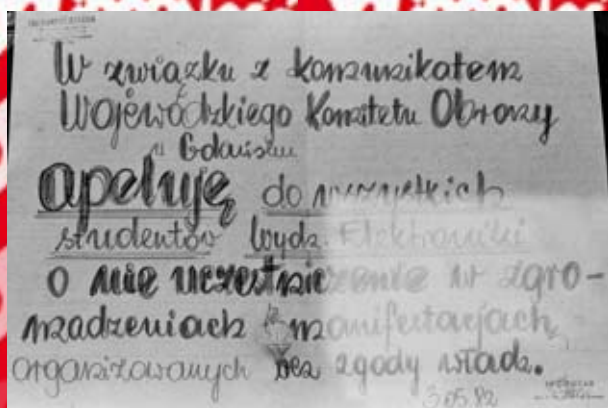 W związku z komunikatem
Wojewódzkiego Komitetu Obrony
w Gdańsku
apeluję do wszystkich
studentów Wydz. Elektroniki
o nie uczestniczenie w zgro-
madzeniach i manifestacjach
organizowanych bez zgody władz.
3.05.82